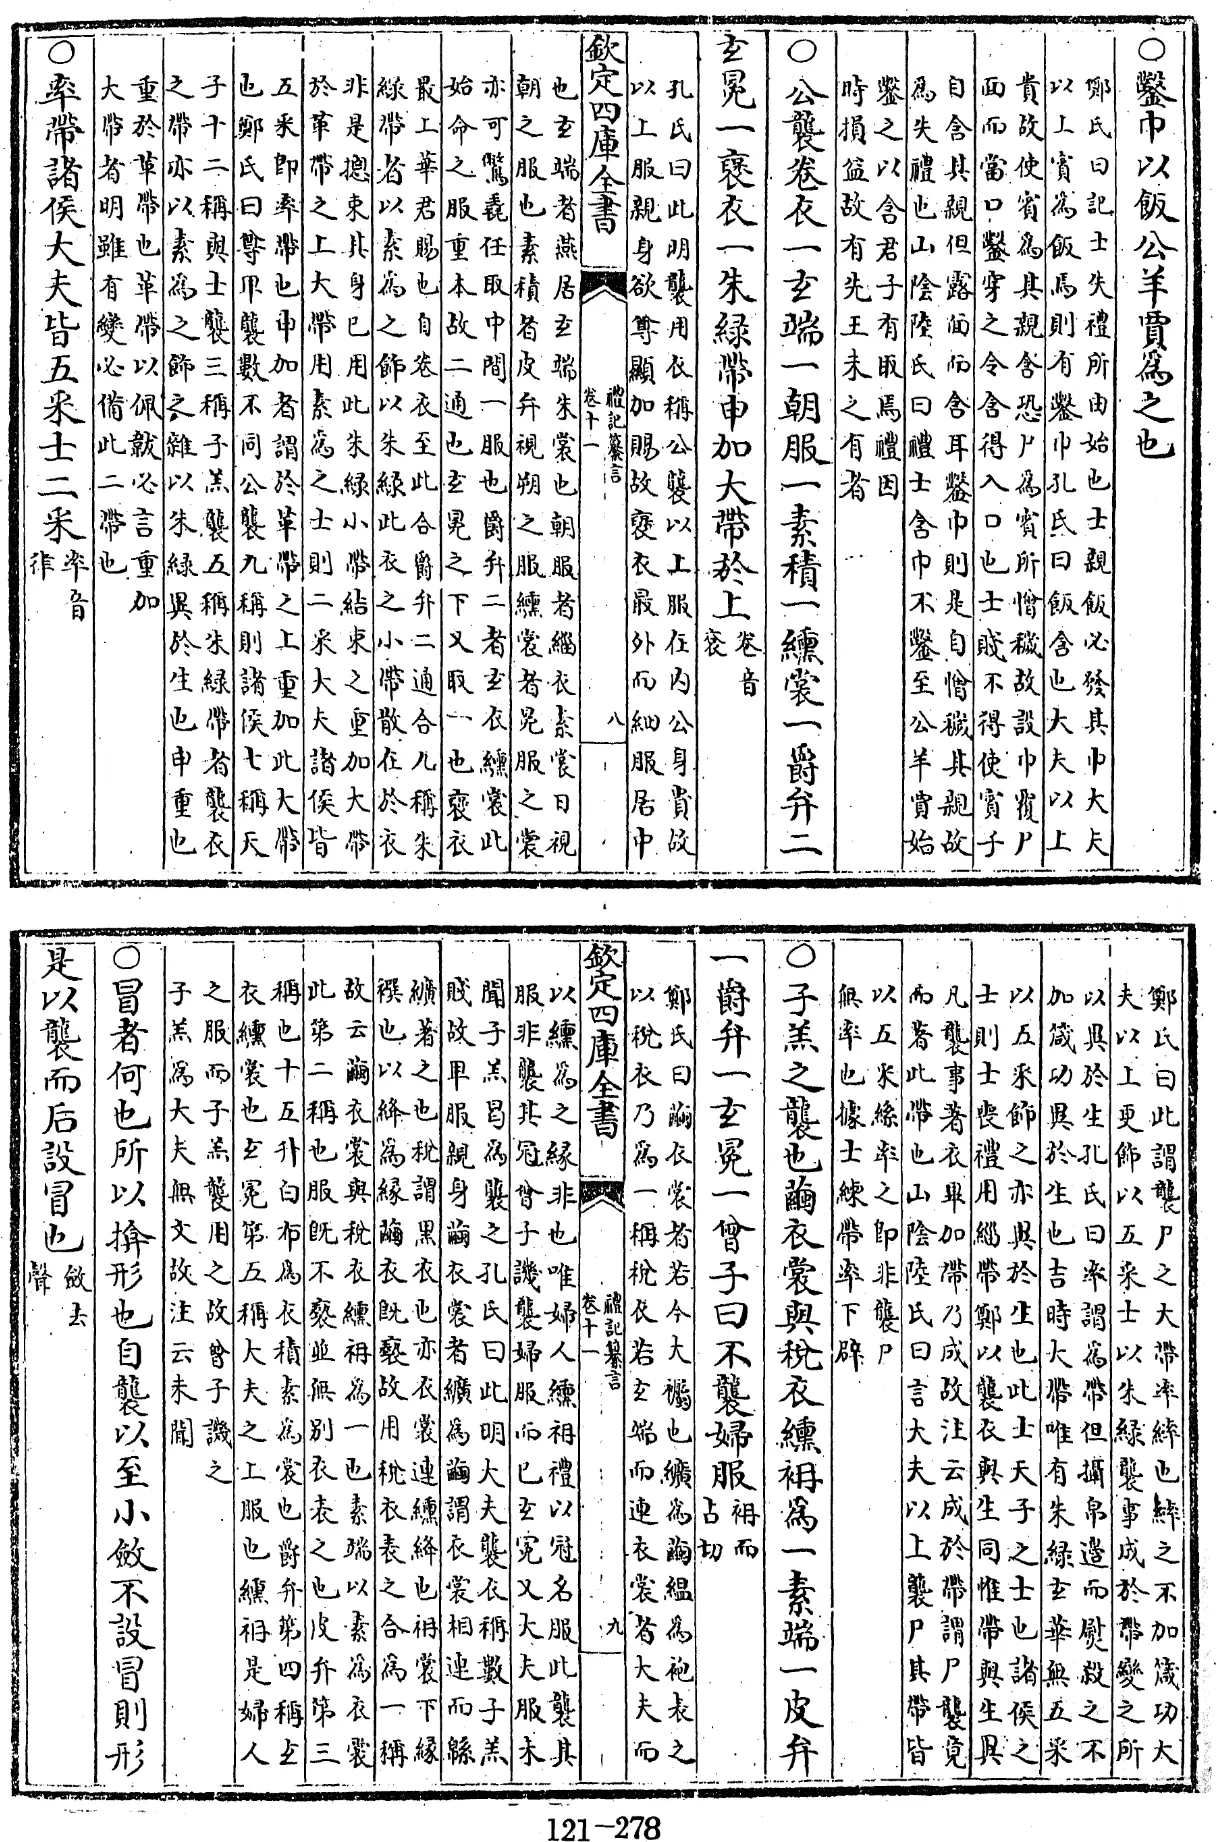 ○鑿巾以飯公羊賈為之也
鄭氏曰記士失禮所由始也士親飯必發其巾大夫
以上賓為飯焉則有鑿巾孔氏曰飯含也大夫以上
貴故使賓為其親含恐尸為賓所憎穢故設巾覆尸
面而當口鑿穿之令含得入口也士賤不得使賓子
自含其親但露面而含耳鑿巾則是自憎穢其親故
為失禮也山陰陸氏曰禮士含巾不鑿至公羊賈始
鑿之以含君子有取焉禮因
時損益故有先王未之有者
○公襲卷衣一玄端一朝服一素積一纁裳一爵弁二
玄冕一褒衣一朱綠帶申加大帶於上
卷音
衮
孔氏曰此明襲用衣稱公襲以上服在内公身貴故
以上服親身欲尊顯加賜故褒衣最外而細服居中
欽定四庫全書
禮記纂言
卷十一
八
也玄端者燕居玄端朱裳也朝服者緇衣素裳日視
朝之服也素積者皮弁視朔之服纁裳者冕服之裳
亦可鷩毳任取中間一服也爵弁二者玄衣纁裳此
始命之服重本故二通也玄冕之下又取一也褒衣
最上華君賜也自卷衣至此合爵弁二通合九稱朱
綠帶者以素為之飾以朱綠此衣之小帶散在於衣
非是摠束其身已用此朱綠小帶結束之重加大帶
於革帶之上大帶用素為之士則二采大夫諸侯皆
五采即率帶也申加者謂於革帶之上重加此大帶
也鄭氏曰尊卑襲數不同公襲九稱則諸侯七稱天
子十二稱與士襲三稱子羔襲五稱朱綠帶者襲衣
之帶亦以素為之飾之雜以朱綠異於生也申重也
重於革帶也革帶以佩韍必言重加
大帶者明雖有變必備此二帶也
○率帶諸侯大夫皆五采士二采
率音
律
鄭氏曰此謂襲尸之大帶率繂也繂之不加箴功大
夫以上更飾以五采士以朱綠襲事成於帶變之所
以異於生孔氏曰率謂為帶但攝帛邊而熨殺之不
加箴功異於生也吉時大帶唯有朱綠玄華無五采
以五采飾之亦異於生也此士天子之士也諸侯之
士則士喪禮用緇帶鄭以襲衣與生同惟帶與生異
凡襲事著衣畢加帶乃成故注云成於帶謂尸襲竟
而著此帶也山陰陸氏曰言大夫以上襲尸其帶皆
以五采絲率之即非襲尸
無率也據士練帶率下辟
○子羔之襲也繭衣裳與稅衣纁袡為一素端一皮弁
一爵弁一玄冕一曾子曰不襲婦服
袡而
占切
鄭氏曰繭衣裳者若今大襡也纊為繭緼為袍表之
以稅衣乃為一稱稅衣若玄端而連衣裳者大夫而
欽定四庫全書
禮記纂言
卷十一
九
以纁為之緣非也唯婦人纁袡禮以冠名服此襲其
服非襲其冠曾子譏襲婦服而已玄冕又大夫服未
聞子羔曷為襲之孔氏曰此明大夫襲衣稱數子羔
賤故卑服親身繭衣裳者纊為繭謂衣裳相連而緜
纊著之也稅謂黑衣也亦衣裳連纁絳也袡裳下緣
襈也以絳為緣繭衣既褻故用稅衣表之合為一稱
故云繭衣裳與稅衣纁袡為一也素端以素為衣裳
此第二稱也服既不褻並無別衣表之也皮弁第三
稱也十五升白布為衣積素為裳也爵弁第四稱玄
衣纁裳也玄冕第五稱大夫之上服也纁袡是婦人
之服而子羔襲用之故曾子譏之
子羔為大夫無文故注云未聞
○冒者何也所以揜形也自襲以至小斂不設冒則形
是以襲而后設冒也
斂去
聲
121-278